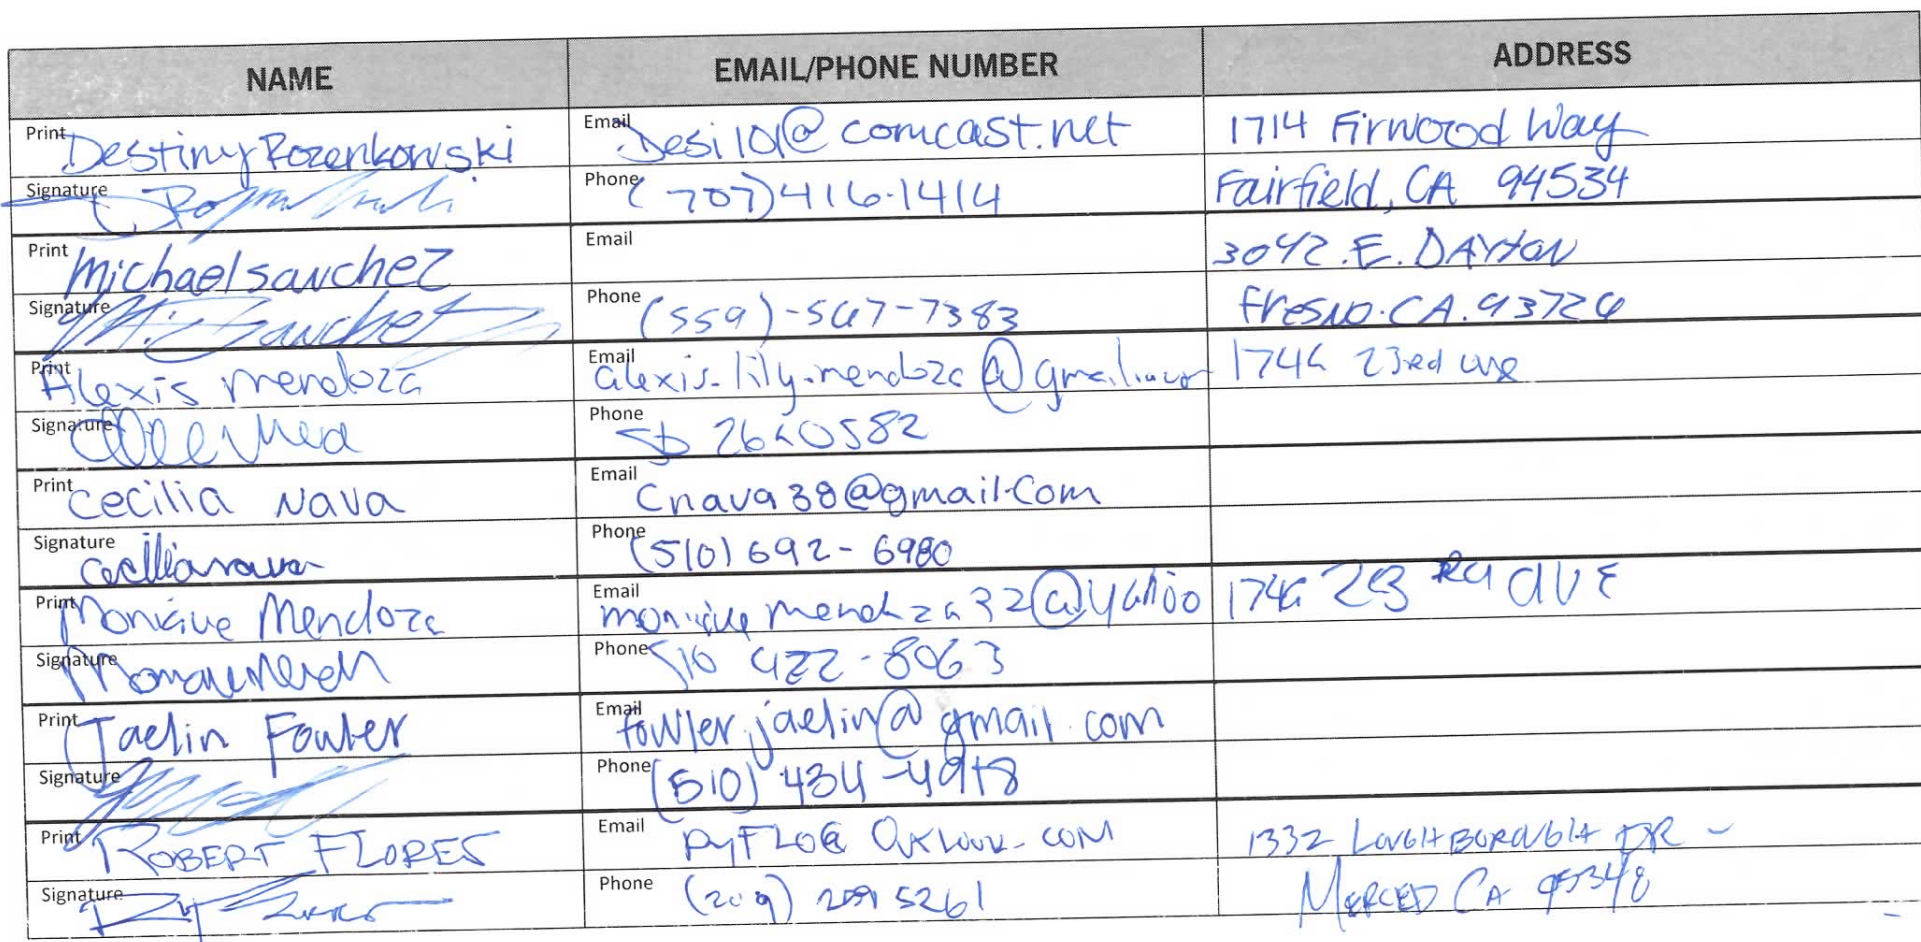 NAME EMAIL/PHONE NUMBER ADDRESS
Print Destiny Rozenkowski Email Desi101@comcast.net 1714 Firwood Way
Signature Phone (707)416-1414 Fairfield, CA 94534
Print Michael Sanchez Email 3042.E. DAYTON
Signature M. Sanchez Phone (559)-567-7383 fresno.CA.93726
Print Alexis Mendoza Email alexis.lily.mendoza@gmail.com 1746 23rd ave
Signature Phone
Print Cecilia Nava Email Cnava38@gmail.Com
Signature cecilia nava Phone (510) 692-6980
Print Monique Mendoza Email moniquemendoza32@yahoo 1746 23 Rd AVE
Signature Phone 510 422-8063
Print Jaelin Fowler Email fowler.jaelin@gmail.com
Signature Phone (510) 434-4918
Print ROBERT FLORES Email 1332 LOUGHBOROUGH DR -
Signature Phone (209) MERCED CA 95348